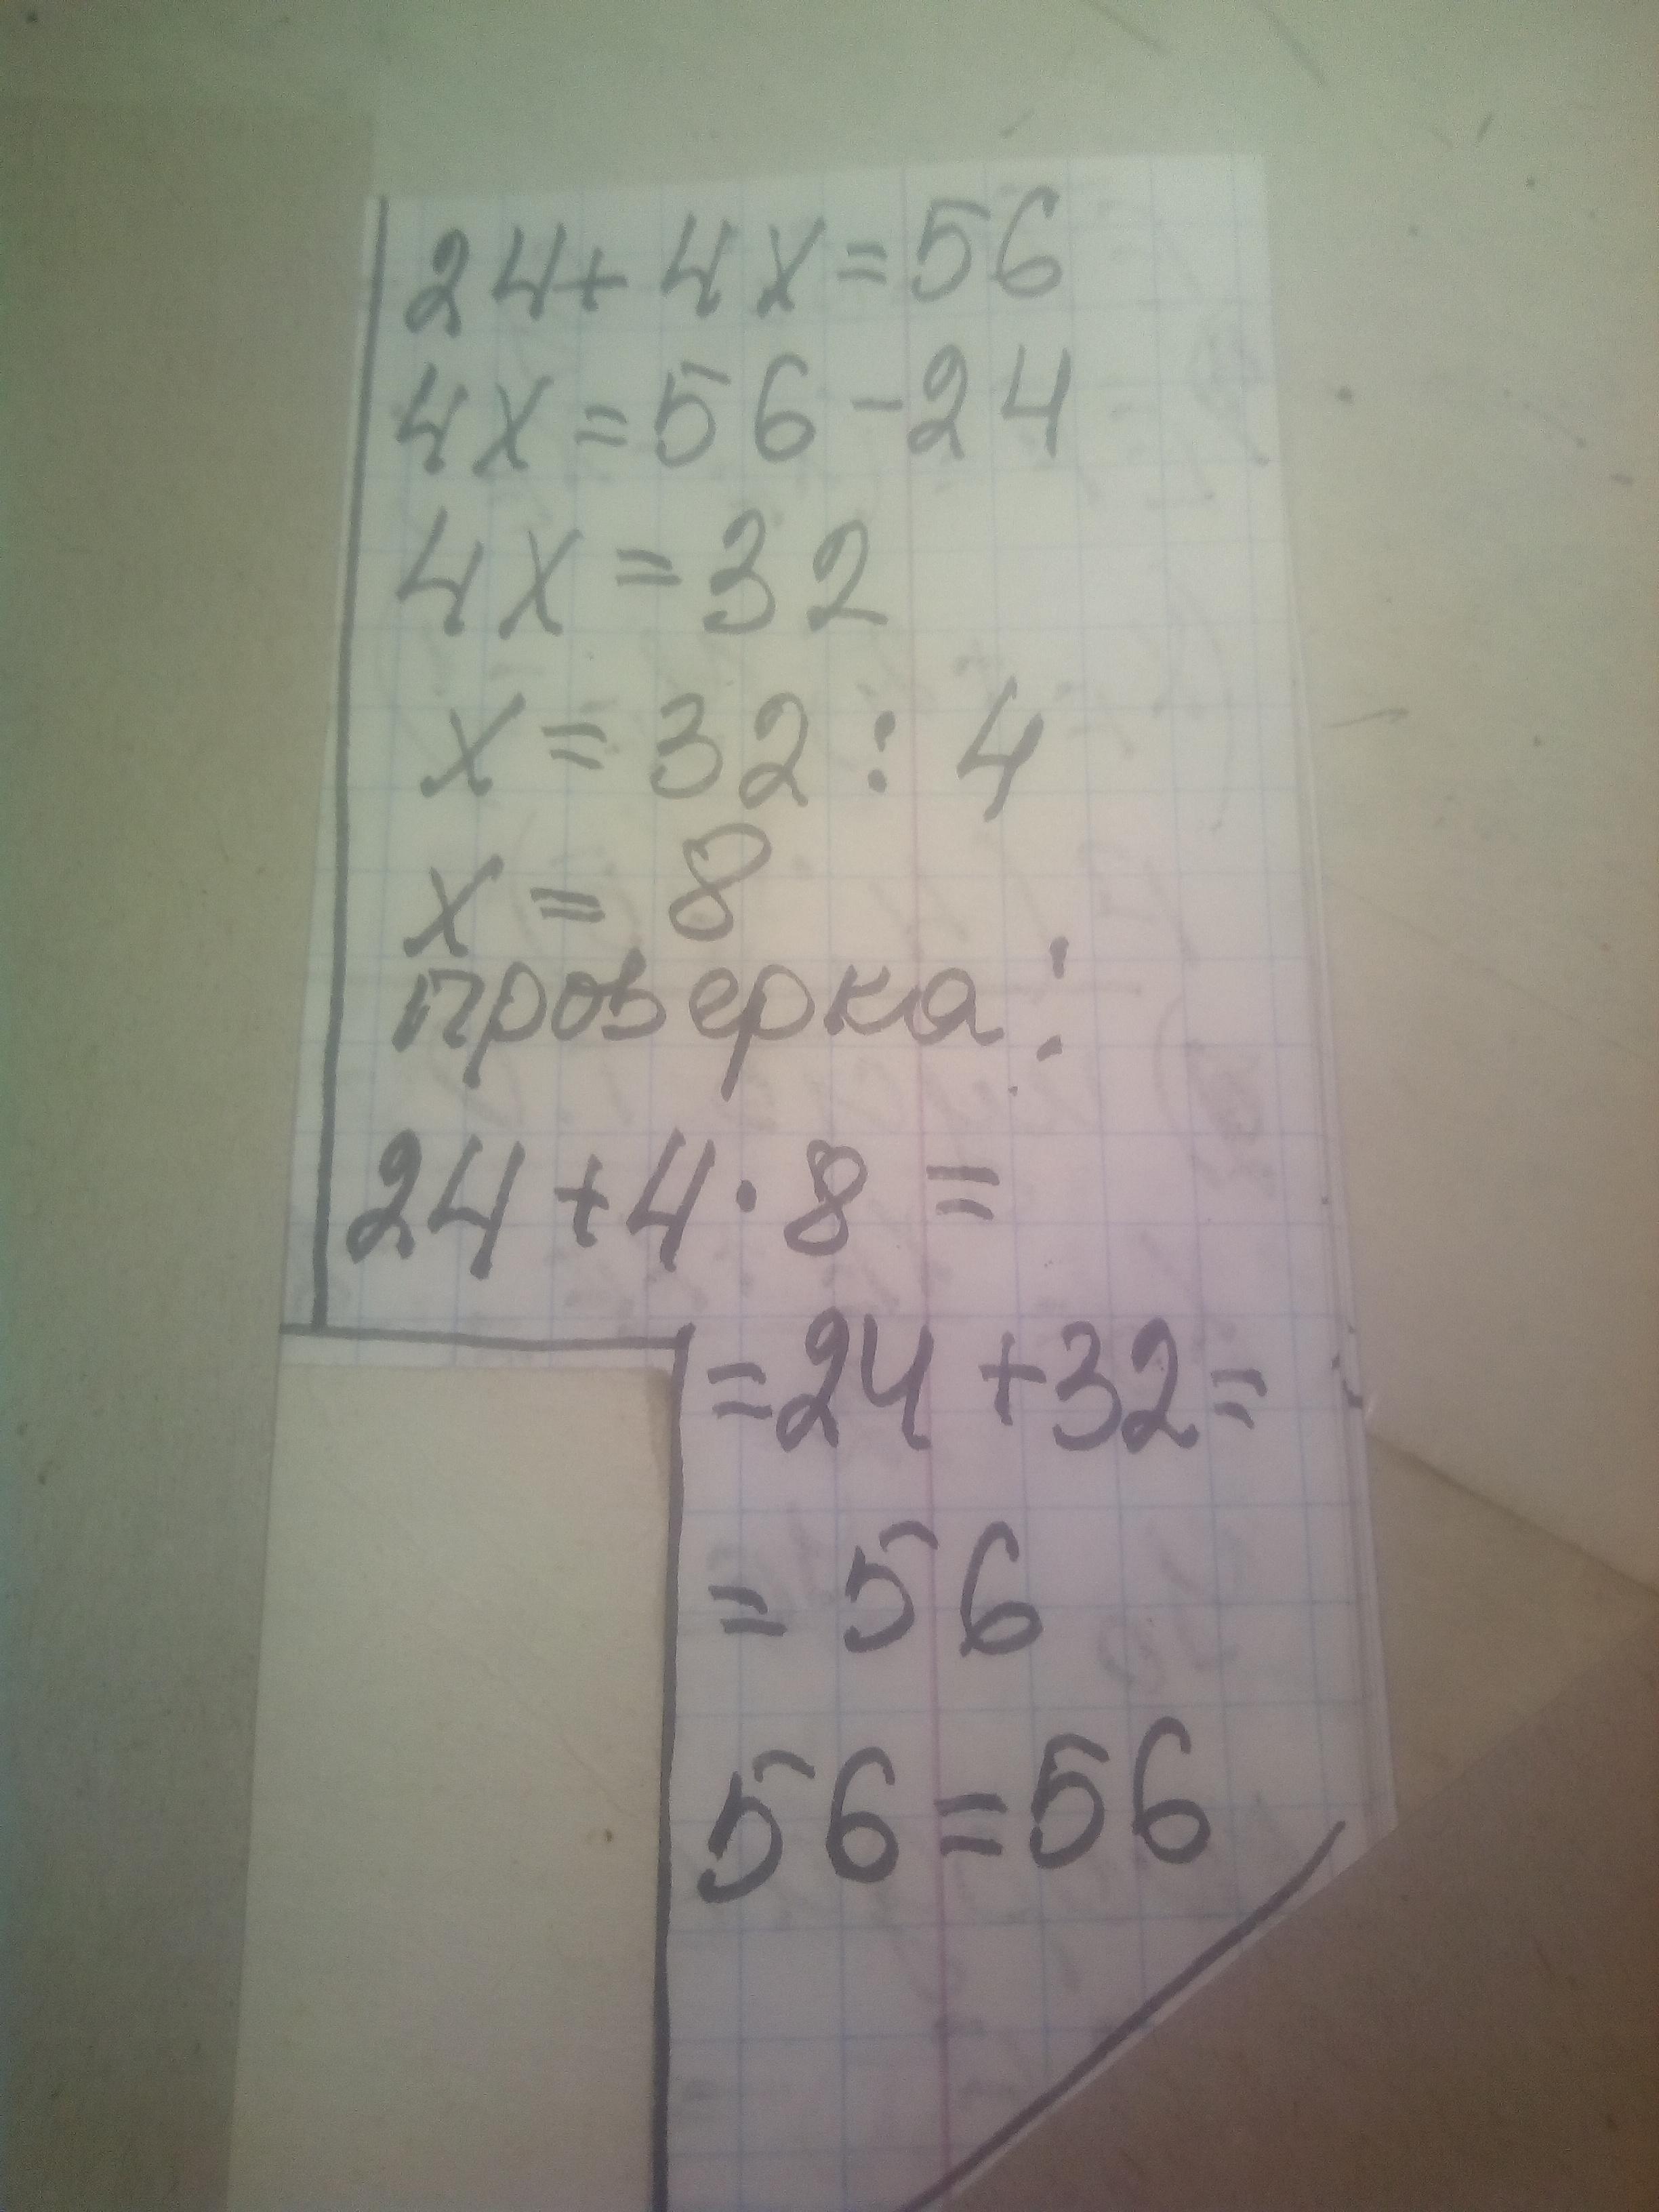 24+4x=56
4x=56-24
4x=32
x=32:4
x=8
проверка:
24+4·8=
=24+32=
=56
56=56